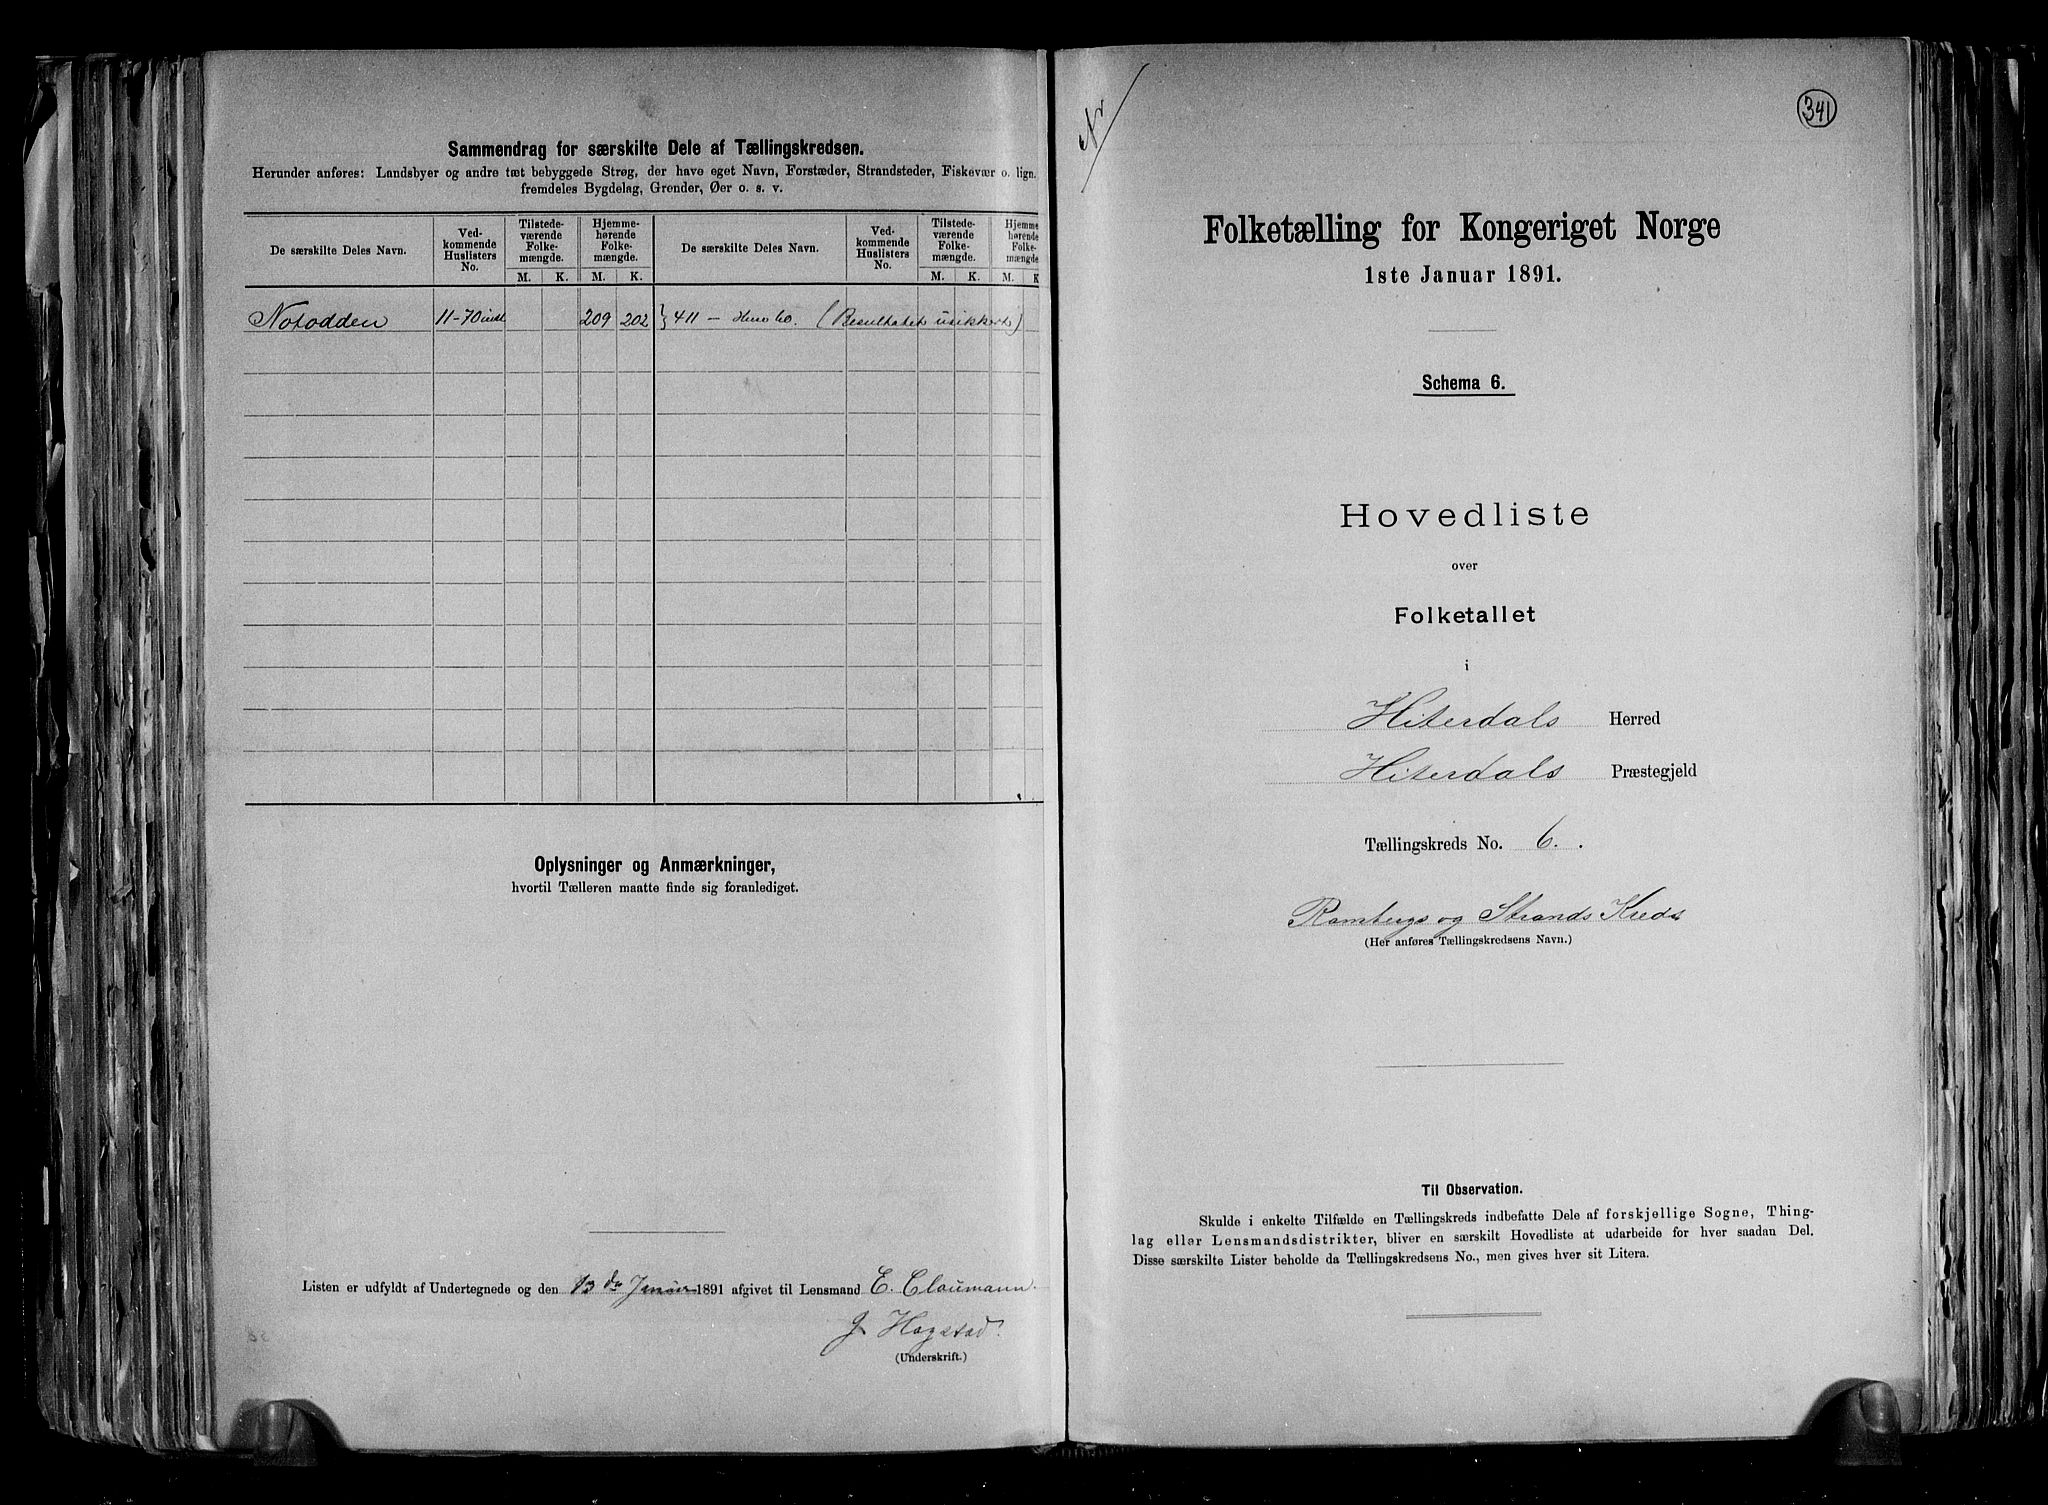 Sammendrag for særskilte Dele af Tællingskredsen.
Herunder anføres: Landsbyer og andre tæt bebyggede Strøg, der have eget Navn, Forstæder, Strandsteder, Fiskevær o. lign.
fremdeles Bygdelag, Grender, Øer o. s. v.
De særskilte Deles Navn. Ved-kommende Huslisters No. Tilstede-værende Folke-mængde. Hjemme-hørende Folke-mængde. De særskilte Deles Navn. Ved-kommende Huslisters No. Tilstede-værende Folke-mængde. Hjemme-hørende Folke-mængde
M. K. M. K. M. K. M. K
Notodden 11-70 incl 209 202 } 411 - (Resultatet usikkert)
Oplysninger og Anmærkninger,
hvortil Tælleren maatte finde sig foranlediget.
Listen er udfyldt af Undertegnede og den 13de Januar 1891 afgivet til Lensmand E. Claumann.
J Hogstad
(Underskrift.)
341
Folketælling for Kongeriget Norge
1ste Januar 1891.
Schema 6.
Hovedliste
over
Folketallet
i
Hiterdals Herred
Hiterdals Præstegjeld
Tællingskreds No. 6.
Rambergs og Strands Kreds
(Her anføres Tællingskredsens Navn.)
Til Observation.
Skulde i enkelte Tilfælde en Tællingskreds indbefatte Dele af forskjellige Sogne, Thing-
lag eller Lensmandsdistrikter, bliver en særskilt Hovedliste at udarbeide for hver saadan Del.
Disse særskilte Lister beholde da Tællingskredsens No., men gives hver sit Litera.